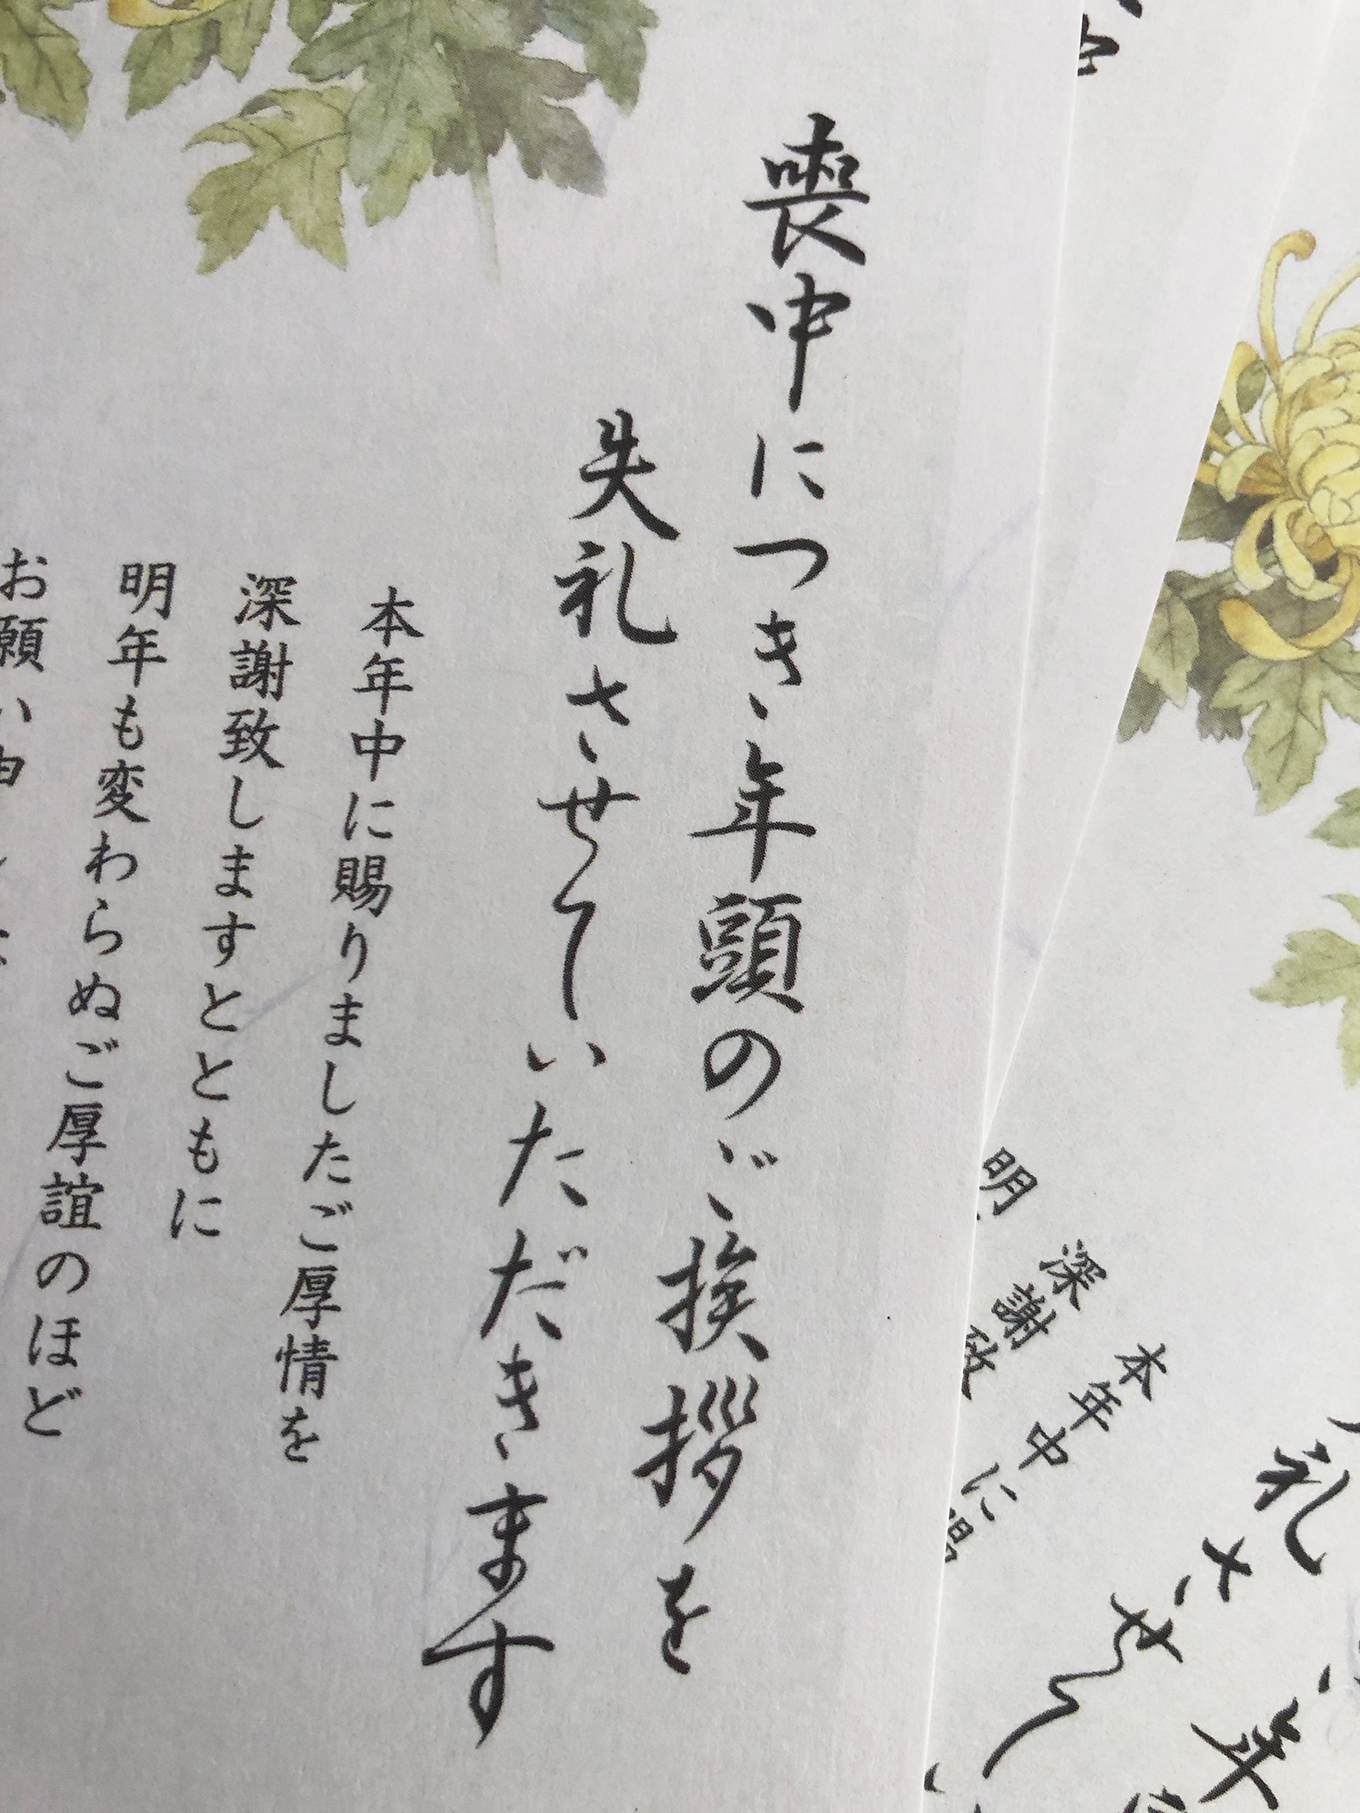 喪中につき年頭のご挨拶を
失礼させていただきます
本年中に賜りましたご厚情を
深謝致しますとともに
明年も変わらぬご厚誼のほど
お願い申し
中
年
礼させてい
本年中に賜
深謝致
明